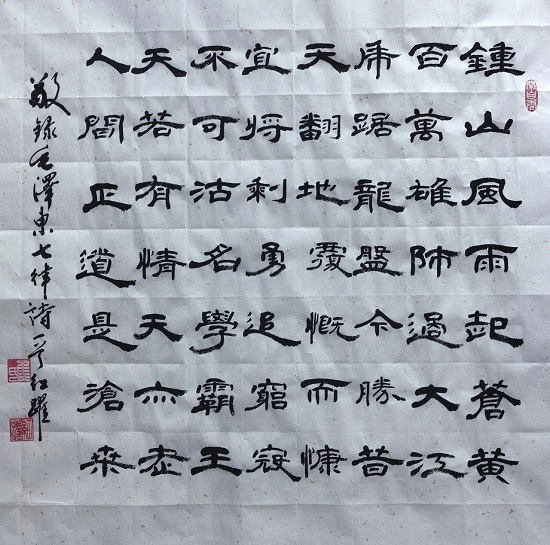 鍾山風雨起蒼黃
百萬雄師過大江
虎踞龍盤今勝昔
天翻地覆慨而慷
宜將剩勇追窮寇
不可沽名學霸王
天若有情天亦老
人間正道是滄桒
敬錄毛澤東七律詩 红躍